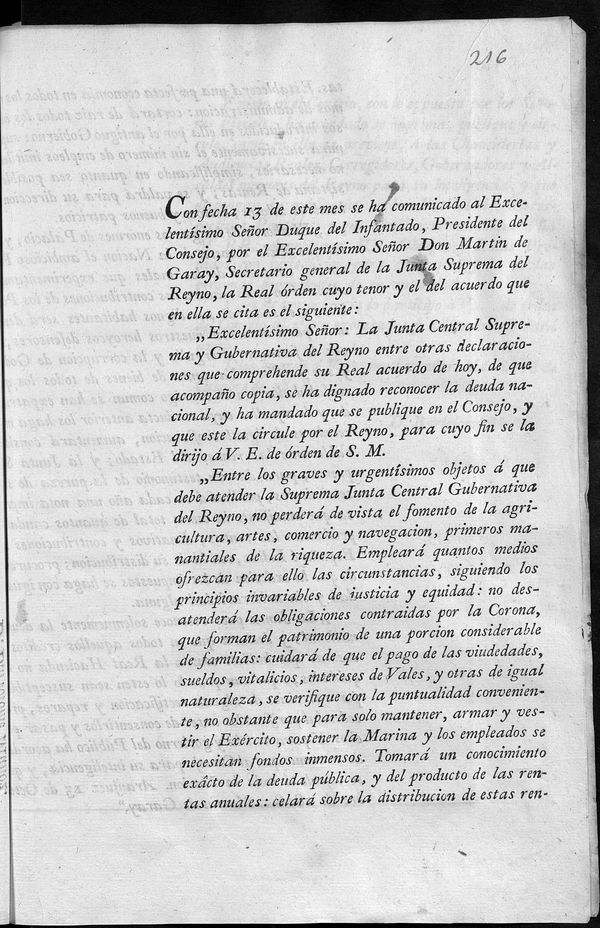 216
Con fecha 13 de este mes se ha comunicado al Exce-
lentísimo Señor Duque del Infantado, Presidente del
Consejo, por el Excelentísimo Señor Don Martin de
Garay, Secretario general de la Junta Suprema del
Reyno, la Real órden cuyo tenor y el del acuerdo que
en ella se cita es el siguiente:
„Excelentísimo Señor: La Junta Central Supre-
ma y Gubernativa del Reyno entre otras declaracio-
nes que comprehende su Real acuerdo de hoy, de que
acompaño copia, se ha dignado reconocer la deuda na-
cional, y ha mandado que se publique en el Consejo, y
que este la circule por el Reyno, para cuyo fin se la
dirijo á V. E. de órden de S. M.
„Entre los graves y urgentísimos objetos á que
debe atender la Suprema Junta Central Gubernativa
del Reyno, no perderá de vista el fomento de la agri-
cultura, artes, comercio y navegacion, primeros ma-
nantiales de la riqueza. Empleará quantos medios
ofrezcan para ello las circunstancias, siguiendo los
principios invariables de justicia y equidad: no des-
atenderá las obligaciones contraidas por la Corona,
que forman el patrimonio de una porcion considerable
de familias: cuidará de que el pago de las viudedades,
sueldos, vitalicios, intereses de Vales, y otras de igual
naturaleza, se verifique con la puntualidad convenien-
te, no obstante que para solo mantener, armar y ves-
tir el Exército, sostener la Marina y los empleados se
necesitan fondos inmensos. Tomará un conocimiento
exácto de la deuda pública, y del producto de las ren-
tas anuales: celará sobre la distribucion de estas ren-